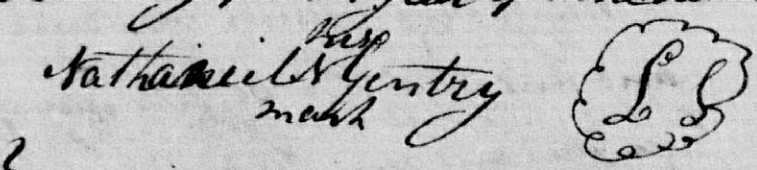 his
Nathaniel N Gentry LS
mark